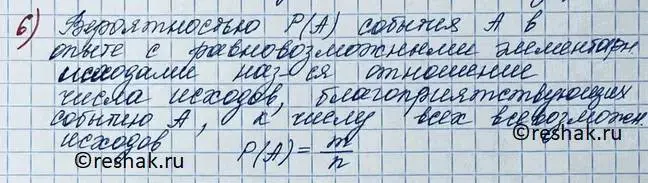 6) Вероятностью P(A) события A в
опыте с равновозможными элементарн.
исходами наз-ся отношение
числа исходов, благоприятствующих
событию A, к числу всех всевозможн.
исходов P(A) = m/n
©reshak.ru
©reshak.ru